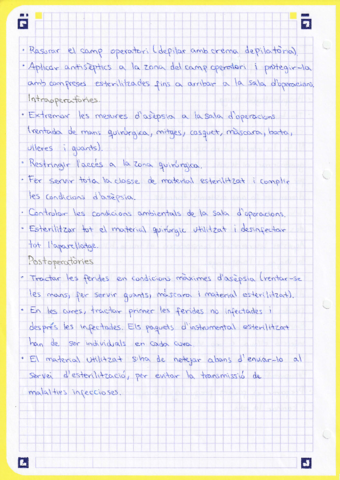 · Rasurar el camp operatori (depilar amb crema depilatòria)
· Aplicar antisèptics a la zona del camp operatori i protegir-la
amb compreses esterilitzades fins a arribar a la sala d'operacions
Intraoperatòries
· Extremar les mesures d'asèpsia a la sala d'operacions
(rentada de mans quirúrgica, mitges, casquet, màscara, bata,
ulleres i guants).
· Restringir l'accés a la zona quirúrgica.
· Fer servir tota la classe de material esterilitzat i complir
les condicions d'asèpsia.
· Controlar les condicions ambientals de la sala d'operacions.
· Esterilitzar tot el material quirúrgic utilitzat i desinfectar
tot l'aparellatge.
Postoperatòries
· Tractar les ferides en condicions màximes d'asèpsia (rentar-se
les mans, fer servir guants, màscara i material esterilitzat).
· En les cures, tractar primer les ferides no infectades i
després les infectades. Els paquets d'instrumental esterilitzat
han de ser individuals en cada cura.
· El material utilitzat s'ha de netejar abans d'enviar-lo al
servei d'esterilització, per evitar la transmissió de
malalties infeccioses.